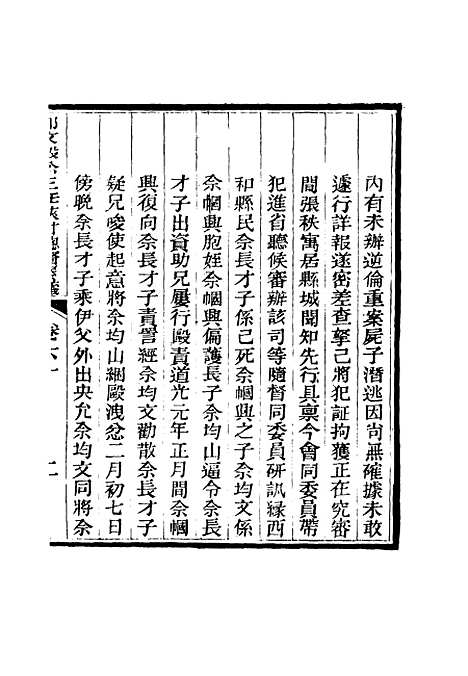 內有未辦逆倫重案屍子潛逃因尙無確據未敢
遽行詳報遂密差查拏己將犯証拘獲正在究審
間張秩寓居縣城聞知先行具稟今會同委員帶
犯進省聽候審辦該司等隨督同委員硏訊緣西
和縣民佘長才子係己死佘幗興之子佘均文係
佘幗興胞姪佘幗興偏護長子佘均山逼令佘長
才子出資助兄屢行毆責道光元年正月間佘幗
興復向佘長才子責詈經佘均文勸散佘長才子
疑兄唆使起意將佘均山綑毆洩忿二月初七日
傍晚佘長才子乘伊父外出央允佘均文同將佘
卷六